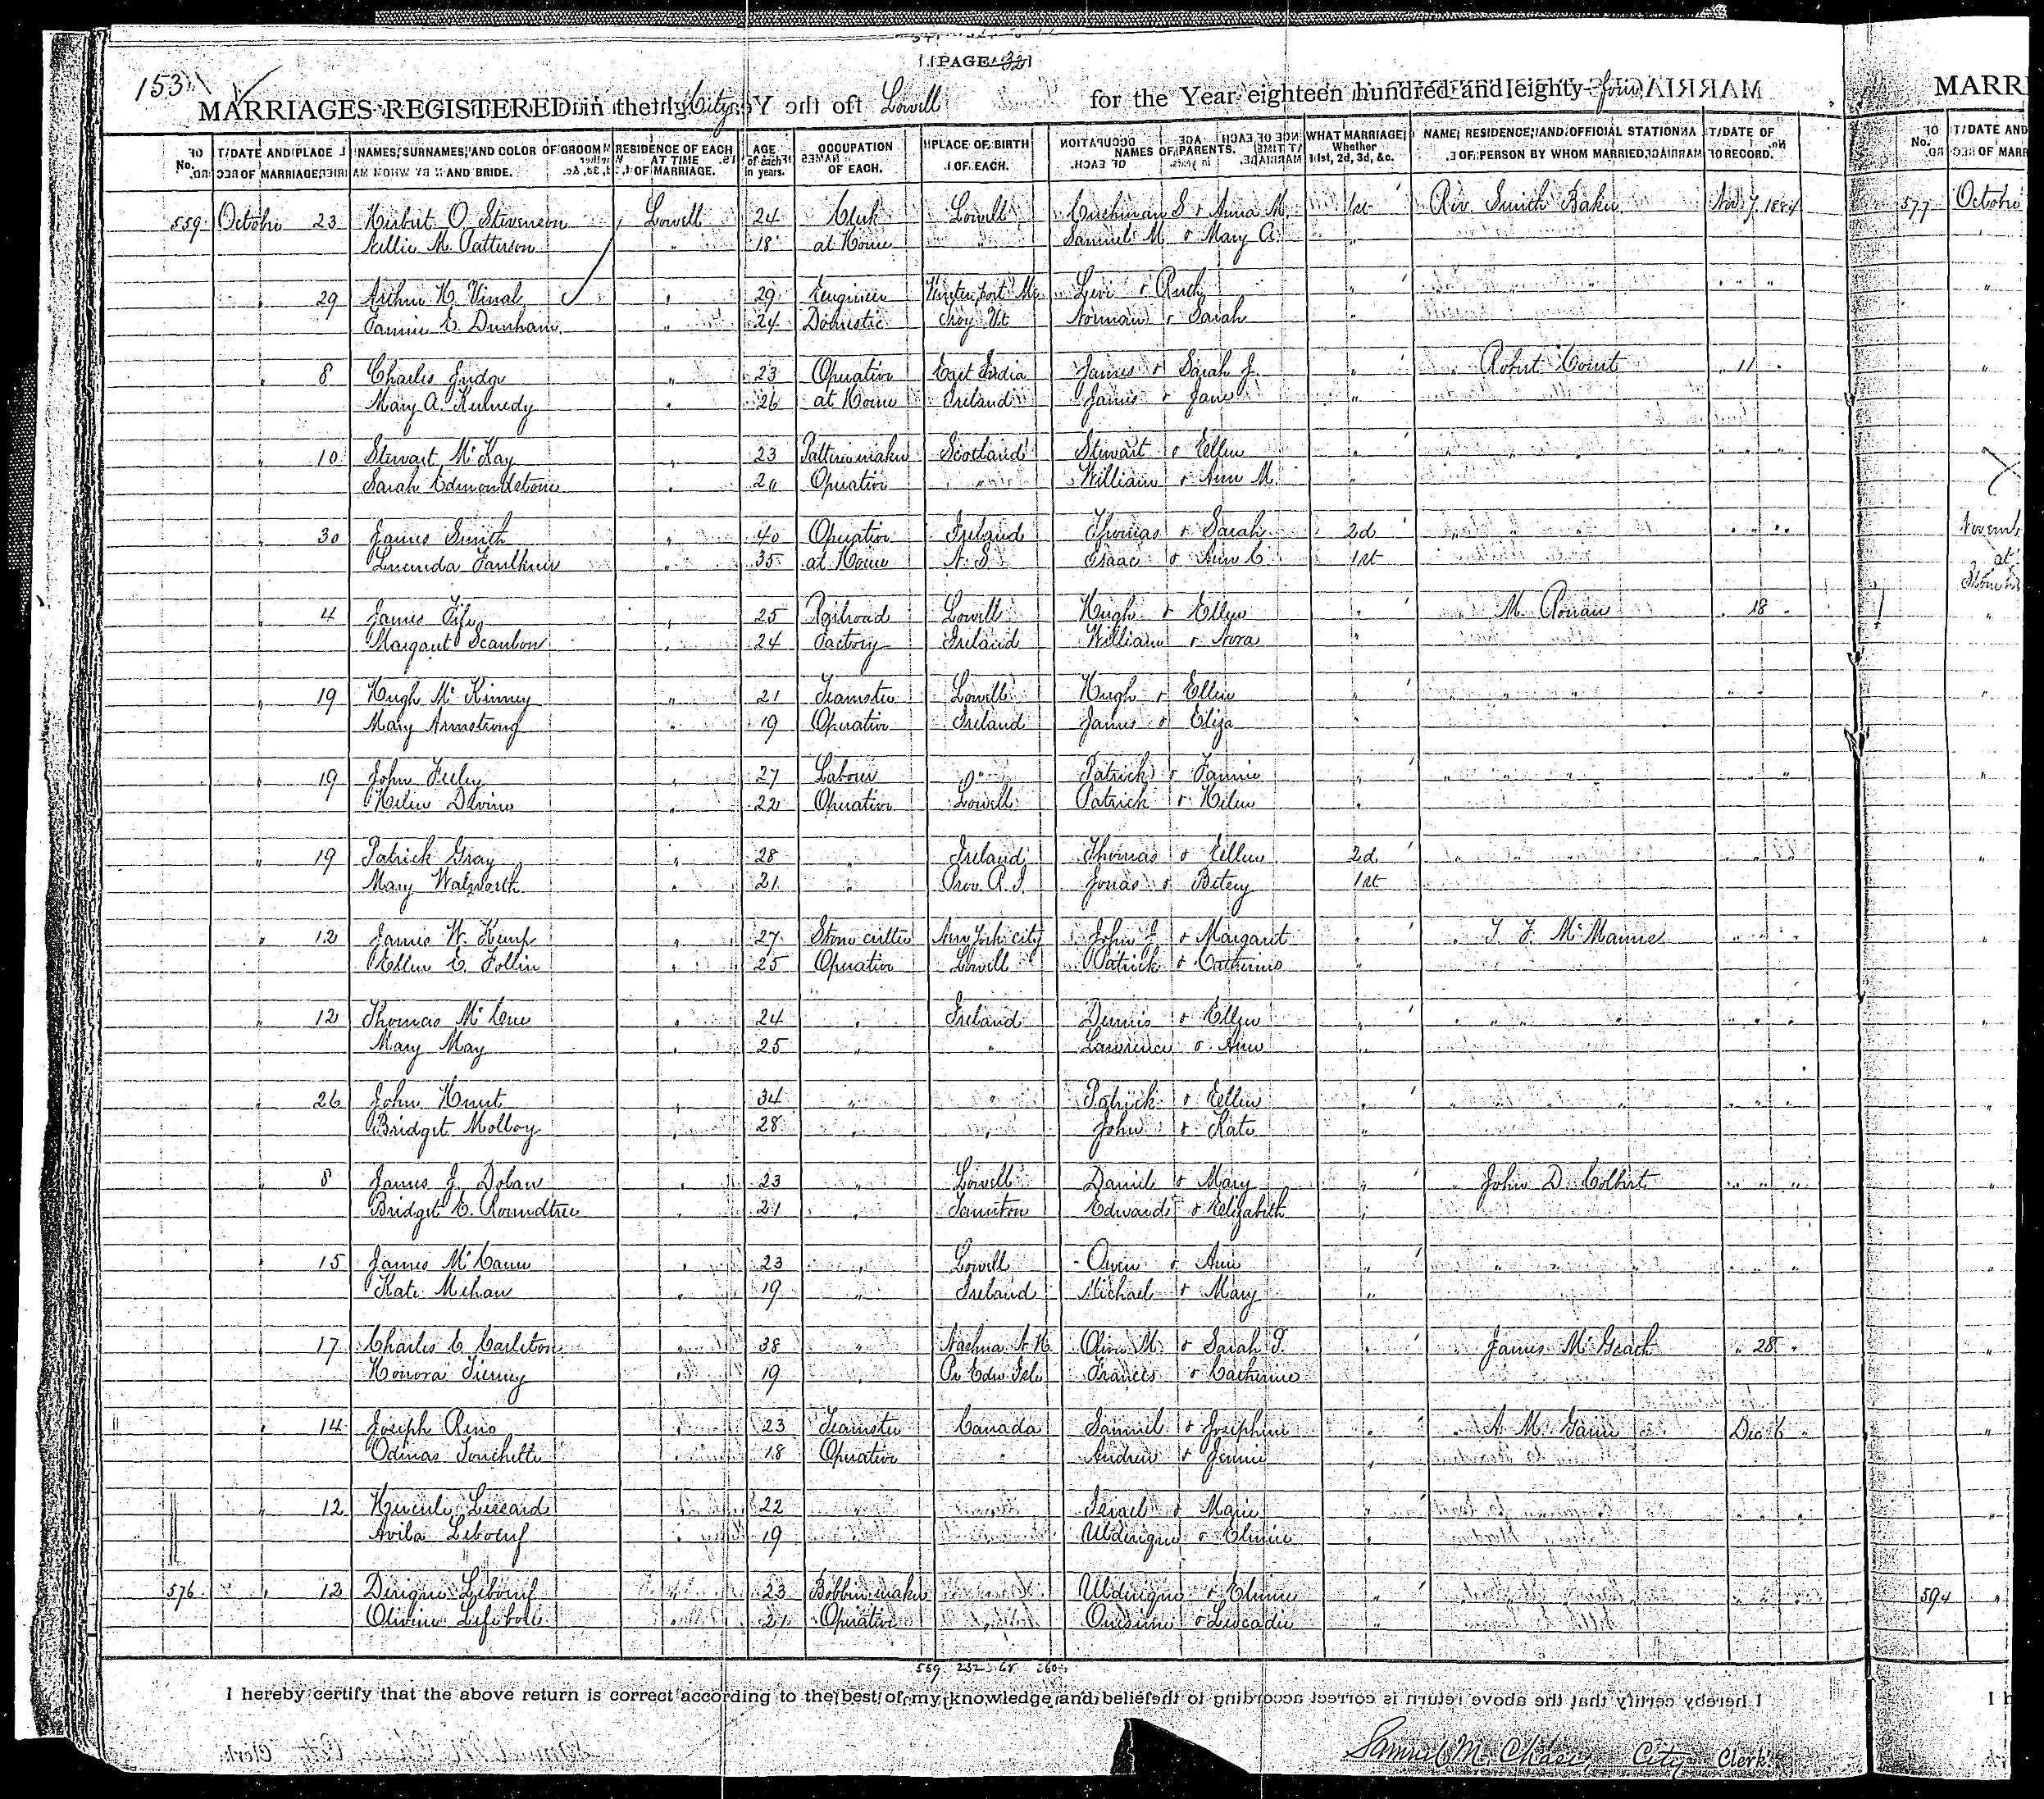 PAGE 32
153
MARRIAGES REGISTERED in the City of Lowell for the Year eighteen hundred and eighty-four
No. DATE AND PLACE OF MARRIAGE. NAMES, SURNAMES, AND COLOR OF GROOM AND BRIDE. RESIDENCE OF EACH AT TIME OF MARRIAGE. AGE of each in years. OCCUPATION OF EACH. PLACE OF BIRTH OF EACH. NAMES OF PARENTS. WHAT MARRIAGE; Whether 1st, 2d, 3d, &c. NAME, RESIDENCE, AND OFFICIAL STATION OF PERSON BY WHOM MARRIED. DATE OF RECORD.
559 October 23 Herbert O Stevenson Lowell 24 Clerk Lowell Cushman S & Anna M. 1st Rev. Smith Baker Nov 7 1884
Nellie M Patterson " 18 at Home " Samuel M & Mary A. "
" 29 Arthur H. Vinal " 29 Engineer Winterport Me Levi & Ruth " " " " " " "
Fannie E Dunham " 24 Domestic Troy Vt Norman & Sarah "
" 8 Charles Judge " 23 Operative East India James & Sarah J. " " Robert Court " 11 "
Mary A. Kennedy " 26 at Home Ireland James & Jane "
" 10 Stewart McKay " 23 Patternmaker Scotland Stewart & Ellen " " " " " " "
Sarah Edmondstone " 20 Operative " William & Ann M. "
" 30 James Smith " 40 Operative Ireland Thomas & Sarah 2d " " " " " "
Lucinda Faulkner " 35 at Home N. S. Isaac & Ann C 1st
" 4 James Fife " 25 Railroad Lowell Hugh & Ellen " " M. Ronan " 18 "
Margaret Scanlon " 24 Factory Ireland William & Nora "
" 19 Hugh McKinney " 21 Teamster Lowell Hugh & Ellen " " " " " " "
Mary Armstrong " 19 Operative Ireland James & Eliza "
" 19 John Feeley " 27 Laborer " Patrick & Fannie " " " " " " "
Helen Devine " 22 Operative Lowell Patrick & Helen "
" 19 Patrick Gray " 28 " Ireland Thomas & Ellen 2d " " " " "
Mary Walworth " 21 " Prov. R. I. Jonas & Betsey 1st
" 12 James W. Kemp " 27 Stone cutter New York city John J & Margaret " " T. F. McManus " " "
Ellen E. Follin " 25 Operative Lowell Patrick & Catherine "
" 12 Thomas McCue " 24 " Ireland Dennis & Ellen " " " " " " "
Mary May " 25 " " Lawrence & Ann "
" 26 John Hunt " 34 " " Patrick & Ellen " " " " " " "
Bridget Molloy " 28 " " John & Kate "
" 8 James J. Dolan " 23 " Lowell Daniel & Mary " " John D. Colbert " " "
Bridget E. Roundtree " 21 " Taunton Edward & Elizabeth "
" 15 James McCann " 23 " Lowell Owen & Ann " " " " " " "
Kate Mehan " 19 " Ireland Michael & Mary "
" 17 Charles C. Carleton " 38 " Nashua N. H. Oliver M. & Sarah T. " James McGrath " 28 "
Honora Tierney " 19 " Pr. Edw. Isle Francis & Catherine
" 14 Joseph Reno " 23 Teamster Canada Samuel & Josephine " " A. M. Garin Dec 6 "
Odinas Touchette " 18 Operative " Andrew & Jennie "
" 12 Hercule Liccard " 22 " Israel & Marie "
Avila Leboeuf " 19 " Ulderique & Elmire "
576 " 12 Derique Leboeuf " 23 Bobbin maker Ulderique & Elmire "
Olivine Lefebvre " 21 Operative Onesime & Leocadie "
559 232 68 260
I hereby certify that the above return is correct according to the best of my knowledge and belief.
Samuel M. Chase, City Clerk.
MARRI
No. DATE AND
OF MARR
577 October
Novemb
at
594
I h